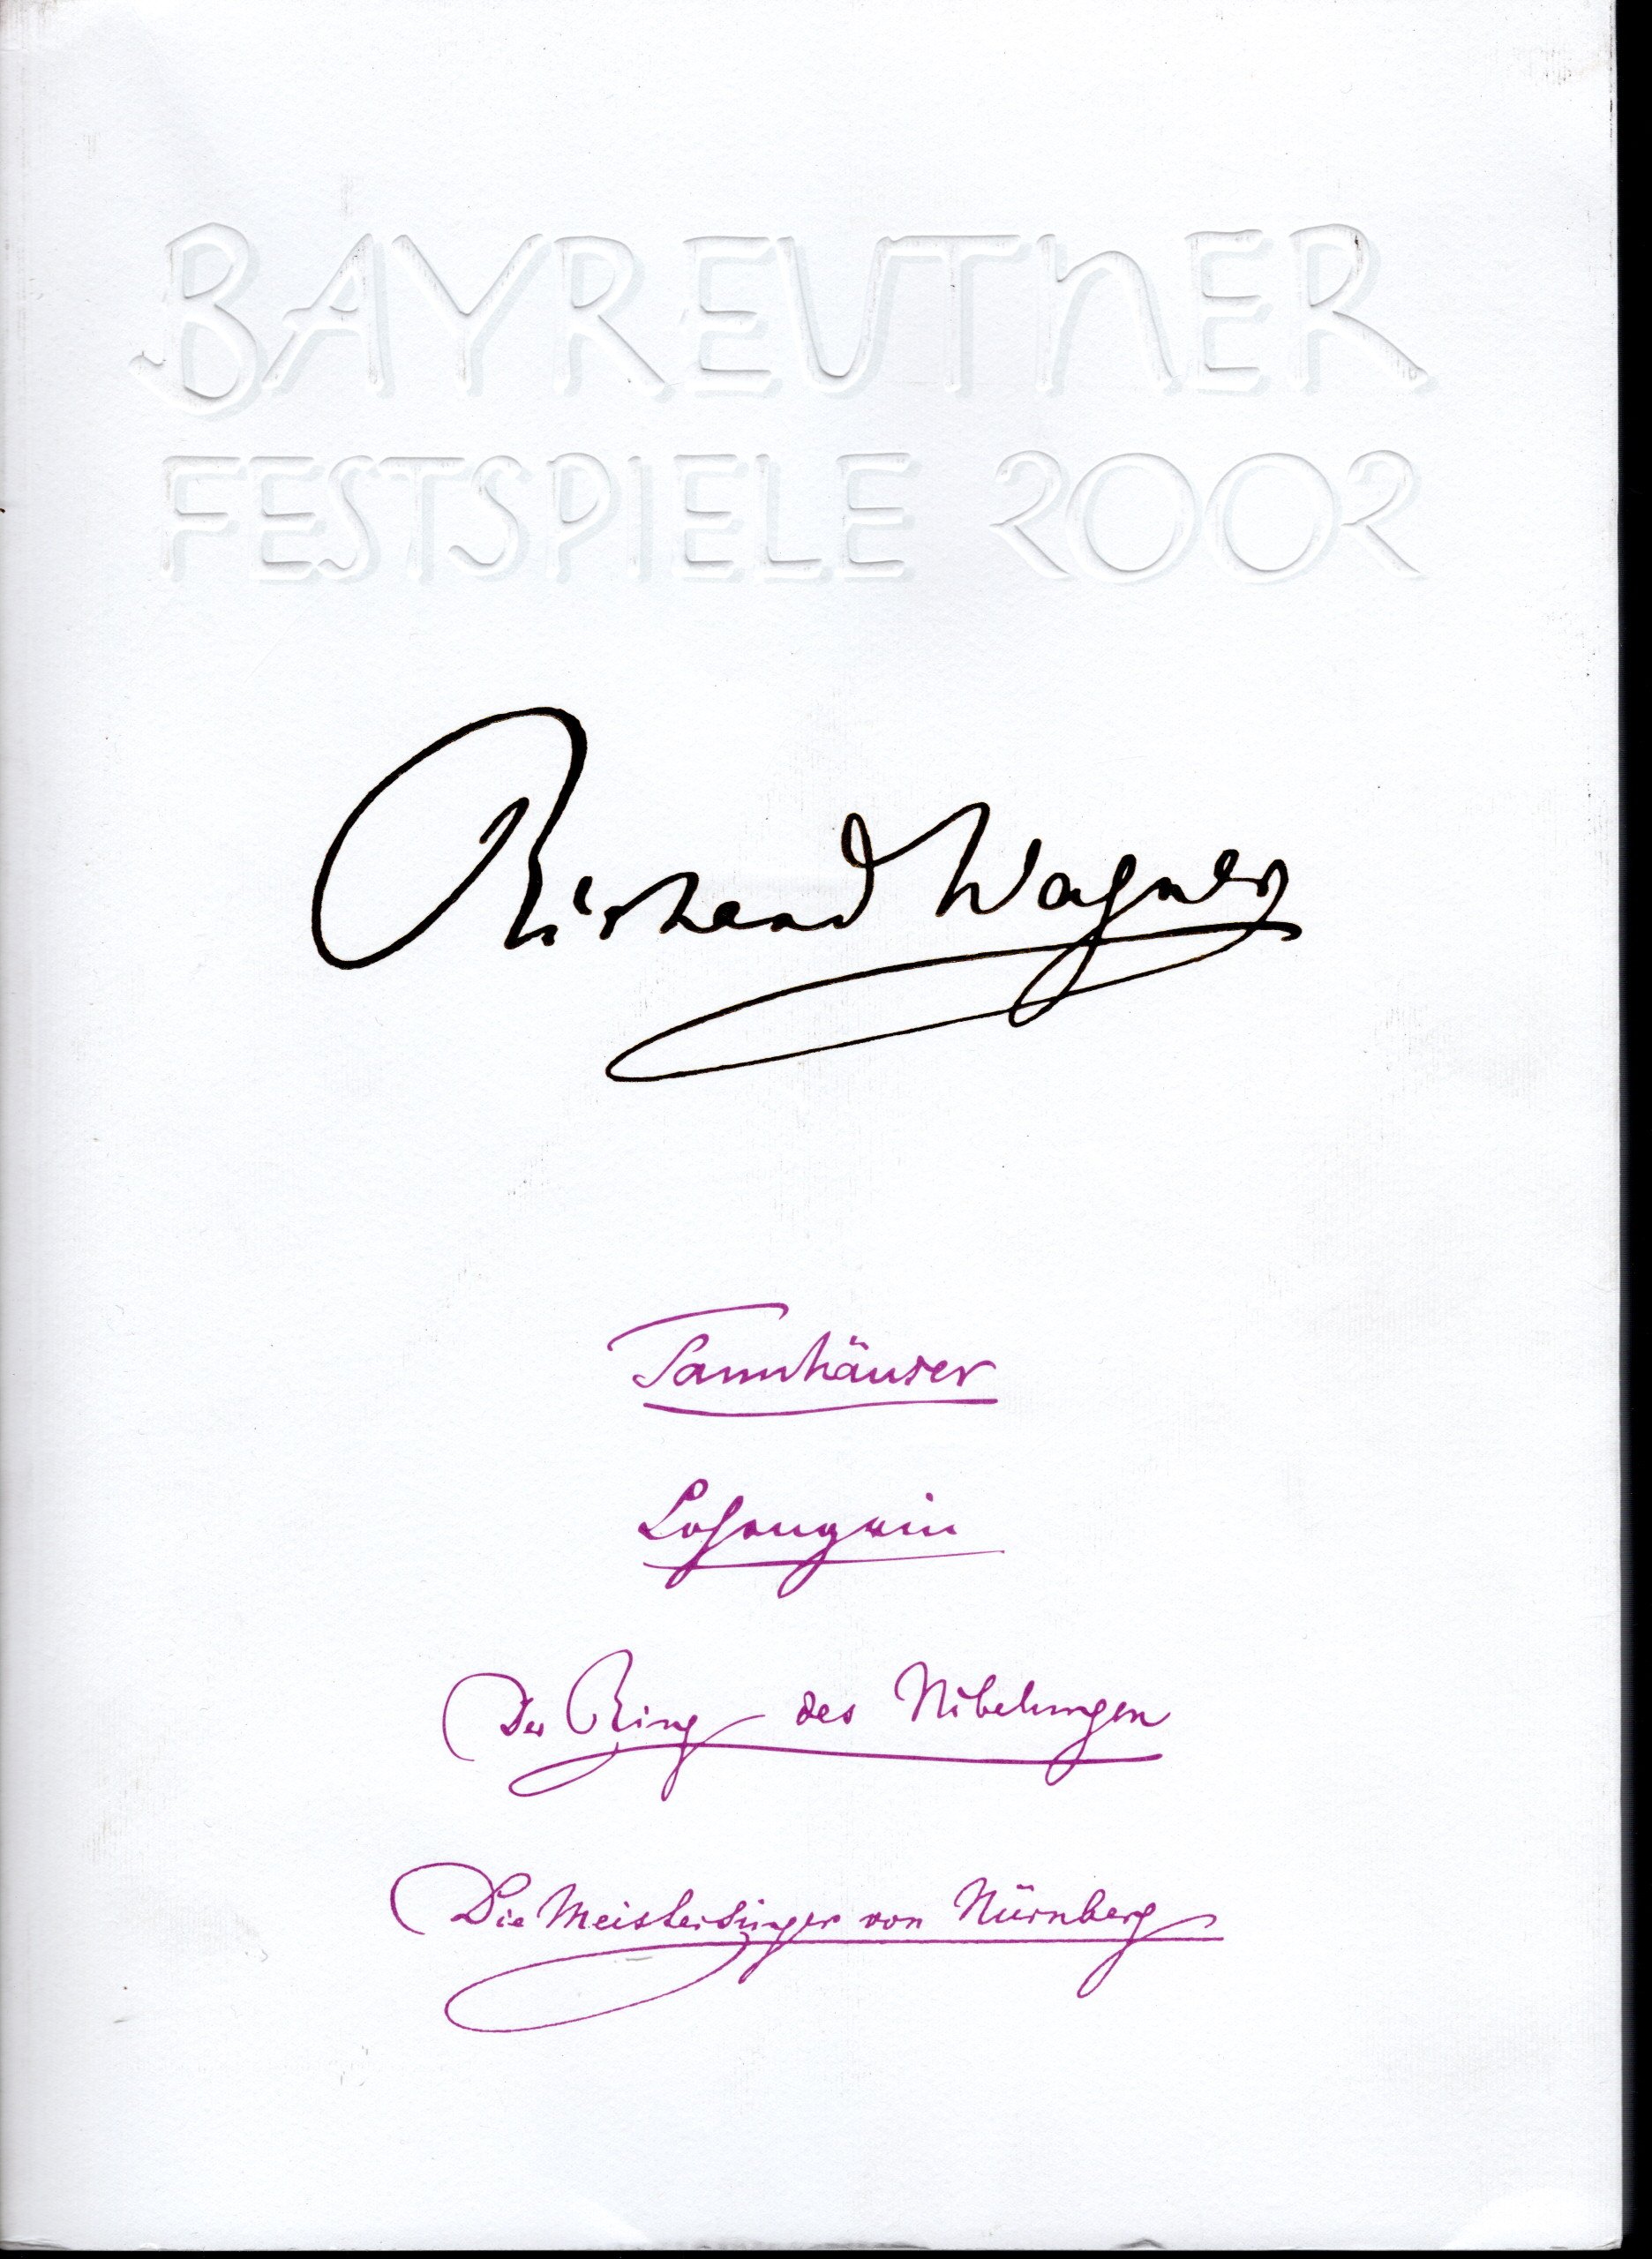 BAYREUTHER
FESTSPIELE 2002
Richard Wagner
Tannhäuser
Lohengrin
Der Ring des Nibelungen
Die Meistersinger von Nürnberg